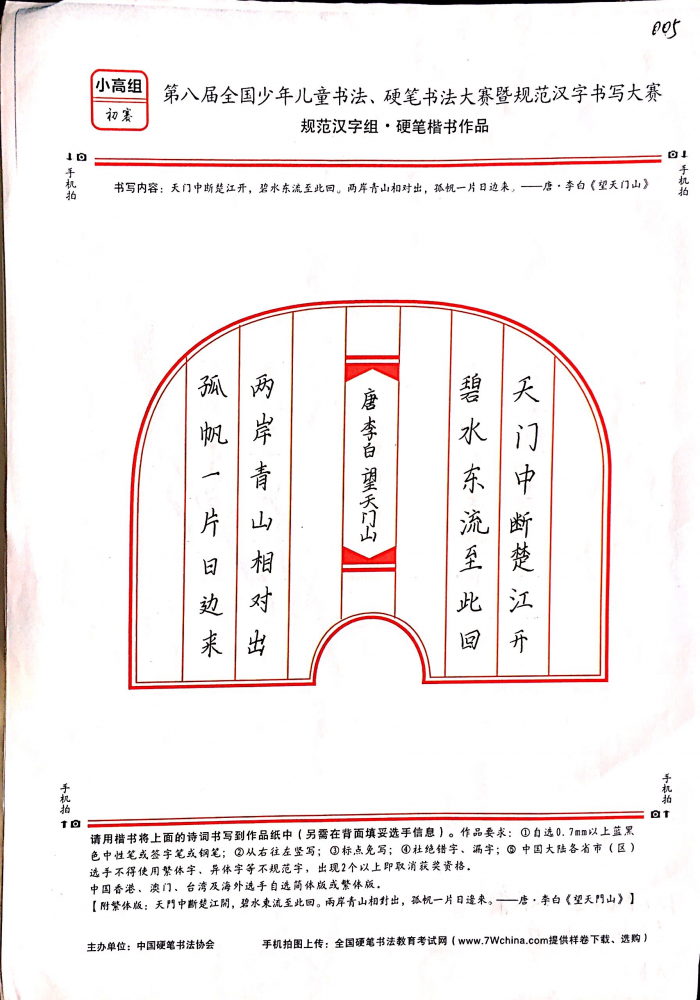 005
小高组
初赛
第八届全国少年儿童书法、硬笔书法大赛暨规范汉字书写大赛
规范汉字组·硬笔楷书作品
手机拍
手机拍
书写内容：天门中断楚江开，碧水东流至此回。两岸青山相对出，孤帆一片日边来。——唐·李白《望天门山》
天门中断楚江开
碧水东流至此回
唐李白望天门山
两岸青山相对出
孤帆一片日边来
手机拍
手机拍
请用楷书将上面的诗词书写到作品纸中（另需在背面填妥选手信息）。作品要求：①自选0.7mm以上蓝黑
色中性笔或签字笔或钢笔；②从右往左竖写；③标点免写；④杜绝错字、漏字；⑤中国大陆各省市（区）
选手不得使用繁体字、异体字等不规范字，出现2个以上即取消获奖资格。
中国香港、澳门、台湾及海外选手自选简体版或繁体版。
【附繁体版：天門中斷楚江開，碧水東流至此回。兩岸青山相對出，孤帆一片日邊來。——唐·李白《望天門山》】
主办单位：中国硬笔书法协会 手机拍图上传：全国硬笔书法教育考试网（www.7Wchina.com提供样卷下载、选购）